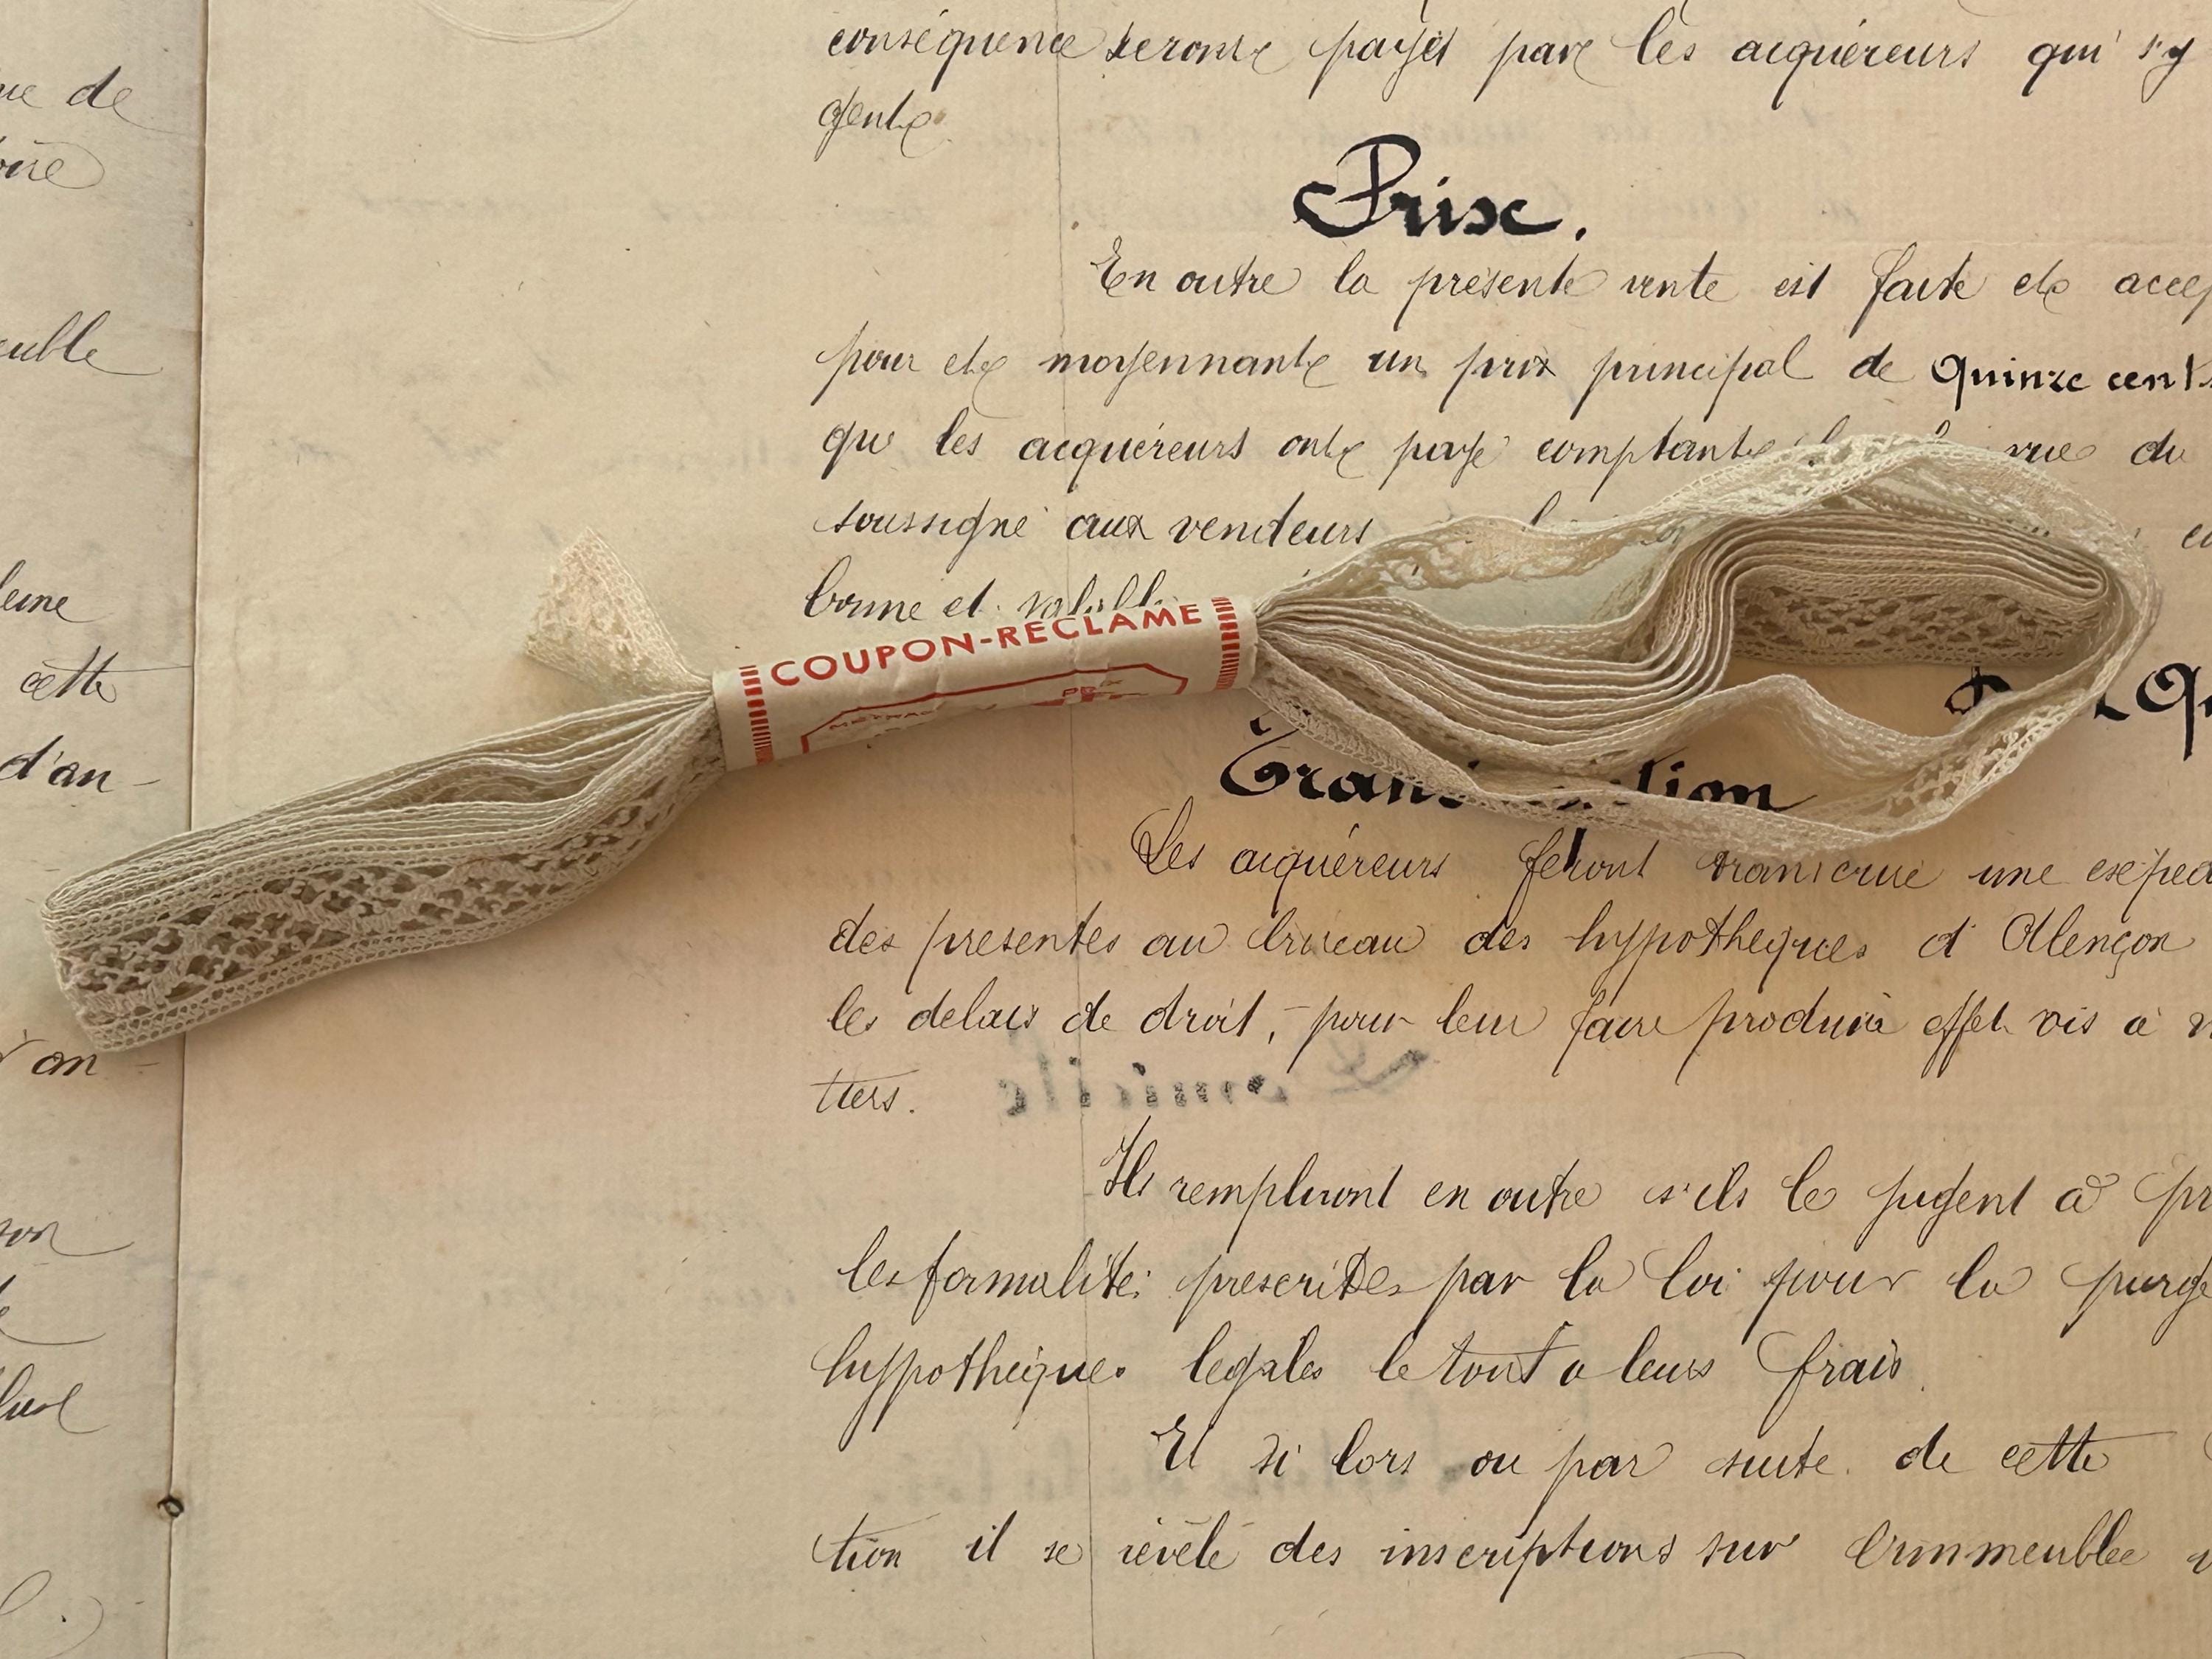 ue de
oire
euble
leine
cette
d'an-
d'an-
son
conséquence seront payés par les acquéreurs qui s'y
gent
Prix.
En outre la présente vente est faite et accep
pour et moyennant un prix principal de quinze cents
que les acquéreurs ont payé comptant vue du
soussigné aux vendeurs
bonne et valabl
COUPON-RECLAME
METRAG
PRIX
Les acquéreurs feront transcrire une expéd
des presentes au bureau des hypothèques d'Alençon
les delais de droit, pour leur faire produire effet vis à
tiers.
Ils rempliront en outre s'ils le jugent à pr
les formalités prescrites par la loi pour la purge
hypothèques legales le tout a leurs frais.
Et si lors ou par suite de cette
tion il se révèle des inscriptions sur l'immeuble